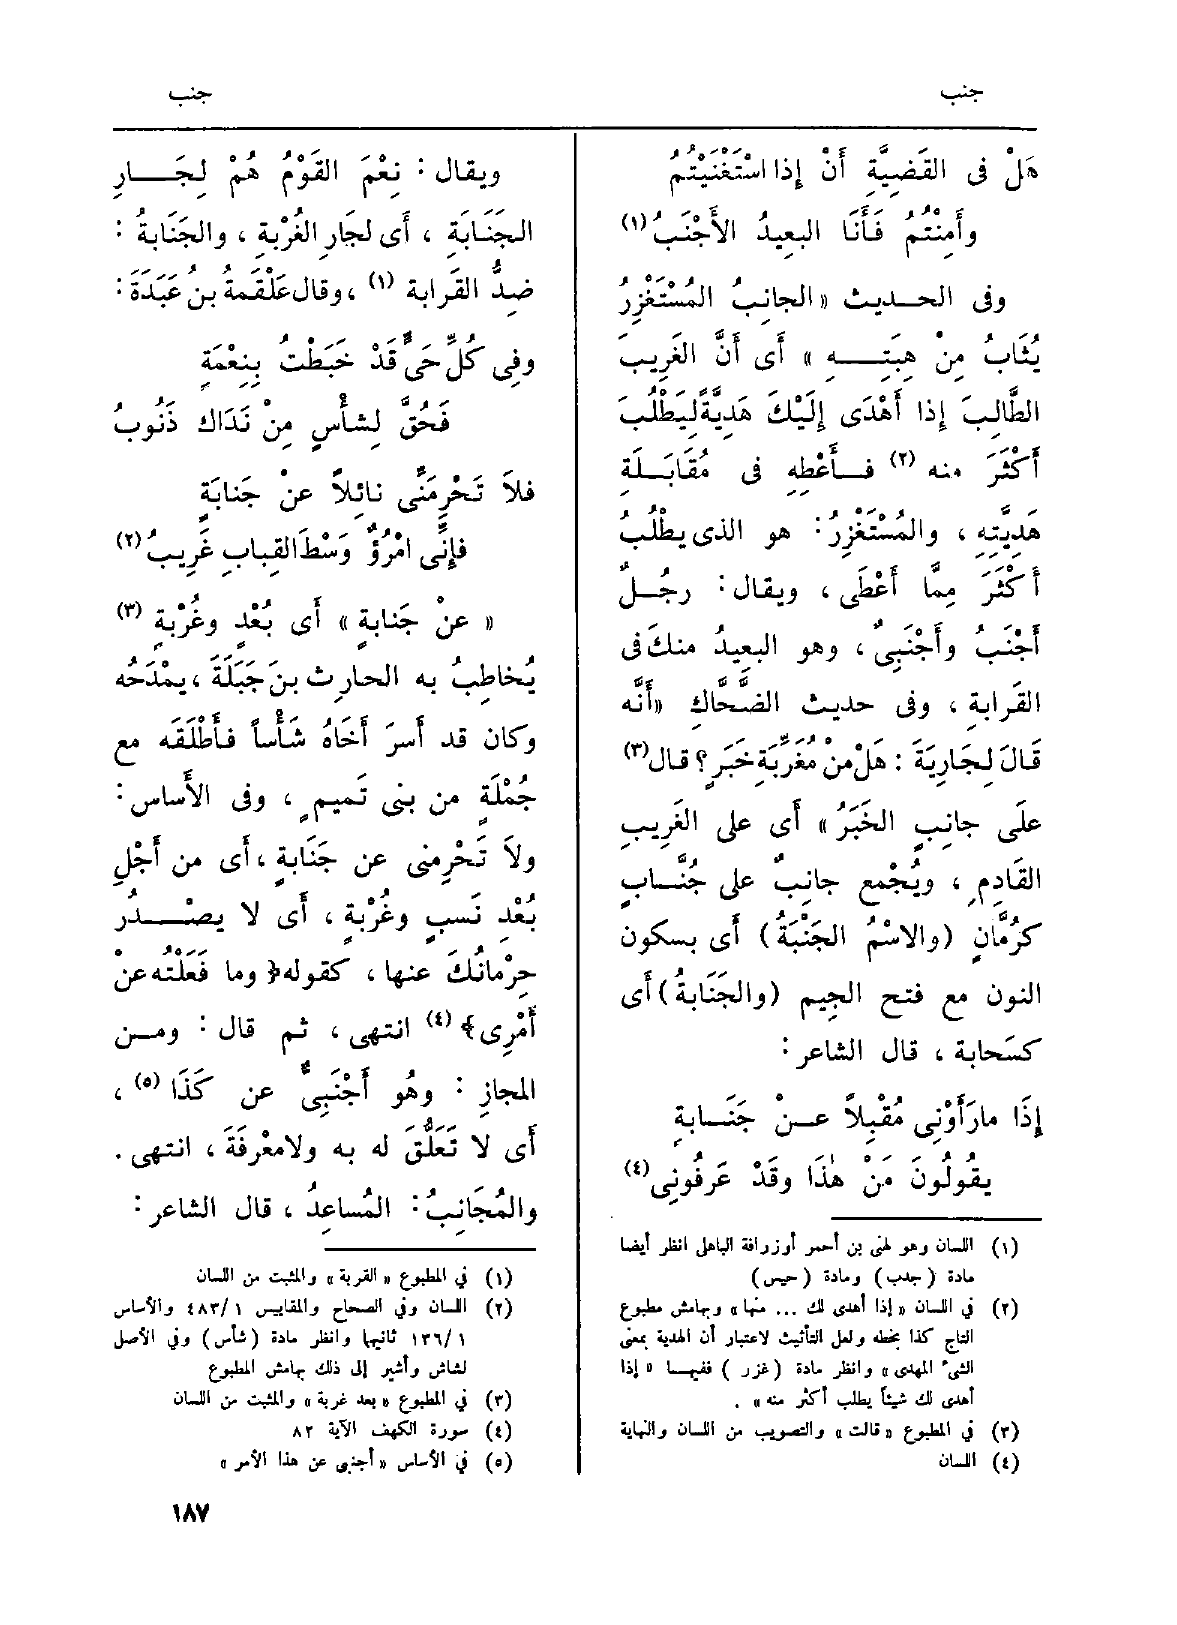 جنب
جنب
هَلْ فى القَضِيَّةِ أَنْ إِذا اسْتَغْنَيْتُمُ
وأَمِنْتُمُ فَأَنَا البعِيدُ الأَجْنَبُ (١)
وفى الحــديث «الجانِبُ المُسْتَغْزِرُ
يُثَابُ مِنْ هِبَتِــــهِ» أَى أَنَّ الغَرِيبَ
الطَّالِبَ إِذا أَهْدَى إِلَيْكَ هَدِيَّةً لِيَطْلُبَ
أَكْثَرَ منه (٢) فــأَعْطِهِ فى مُقَابَــلَةِ
هَدِيَّتِهِ ، والمُسْتَغْزِرُ: هو الذى يطْلُبُ
أَكْثَرَ مِمَّا أَعْطَى ، ويقال : رجُــلٌ
أَجْنَبُ وأَجْنَبِىٌّ ، وهو البعِيدُ منكَ فى
القَرابةِ ، وفى حديث الضَّحَّاكِ «أَنَّه
قَالَ لِجَارِيَةَ : هَلْ مِنْ مُغَرِّبَةِ خَبَرٍ ؟ قال (٣)
علَى جانِبٍ الخَبَرُ » أَى على الغَرِيبِ
القَادِمِ ، ويُجْمع جانِبٌ على جُنَّــابٍ
كرُمَّانٍ (والاسْمُ الجَنْبَةُ) أَى بسكون
النون مع فتح الجِيم (والجَنَابةُ) أَى
كسَحابة ، قال الشاعر :
إِذَا مارَأَوْنِى مُقْبِلاً عــنْ جَنَــابةٍ
يقُولُونَ مَنْ هٰذَا وقَدْ عَرفُونِى (٤)
(١) اللسان وهو لهنى بن أحمر أو زرافة الباهلى انظر أيضا
مادة (جدب) ومادة (حيس)
(٢) في اللسان «إذا أهدى لك ... منها» وبهامش مطبوع
التاج كذا بخطه ولعل التأنيث لاعتبار أن الهدية بمعنى
الشىء المهدى» وانظر مادة (غزر) ففيهــا «إذا
أهدى لك شيئاً يطلب أكثر منه» .
(٣) في المطبوع «قالت» والتصويب من اللسان والنهاية
(٤) اللسان
ويقال : نِعْمَ القَوْمُ هُمْ لِجَــــارِ
الجَنَابَةِ ، أَى لجَارِ الغُرْبةِ ، والجَنَابةُ :
ضِدُّ القَرابة (١) ، وقال عَلْقَمةُ بنُ عَبَدَةَ :
وفِى كُلِّ حَىٍّ قَدْ خَبَطْتَ بِنِعْمَةٍ
فَحُقَّ لِشأْسٍ مِنْ نَدَاكَ ذَنُوبُ
فلاَ تَحْرِمَنِّى نائِلاً عنْ جَنابةٍ
فإِنِّى امْرُؤٌ وَسْطَ القِبابِ غَرِيبُ (٢)
« عنْ جَنابةٍ » أَى بُعْدٍ وغُرْبةٍ (٣)
يُخاطِبُ به الحارِث بنَ جَبَلَةَ ، يمْدَحُه
وكان قد أَسرَ أَخَاهُ شَأْساً فأَطْلَقَه مع
جُمْلَةٍ من بنى تَميمٍ ، وفى الأَساس :
ولاَ تَحْرِمنى عن جَنَابةٍ ، أَى من أَجْلِ
بُعْدِ نَسبٍ وغُرْبةٍ ، أَى لا يصْــــدُر
حِرْمانُكَ عنها ، كقوله ﴿ وما فَعَلْتُه عنْ
أَمْرِى﴾ (٤) انتهى ، ثم قال : ومــن
المجازِ : وهُو أَجْنَبِىٌّ عن كَذَا (٥) ،
أَى لا تَعَلُّقَ له به ولا معْرفَةَ ، انتهى .
والمُجَانِبُ : المُساعِدُ ، قال الشاعر :
(١) في المطبوع «القربة» والمثبت من اللسان
(٢) اللسان وفي الصحاح والمقاييس ٤٨٣/١ والأساس
١٣٦/١ ثانيها وانظر مادة (شأس) وفي الأصل
لشاش وأشير إلى ذلك بهامش المطبوع
(٣) في المطبوع «بعد غربة» والمثبت من اللسان
(٤) سورة الكهف الآية ٨٢
(٥) في الأساس «أجنبى عن هذا الأمر»
١٨٧